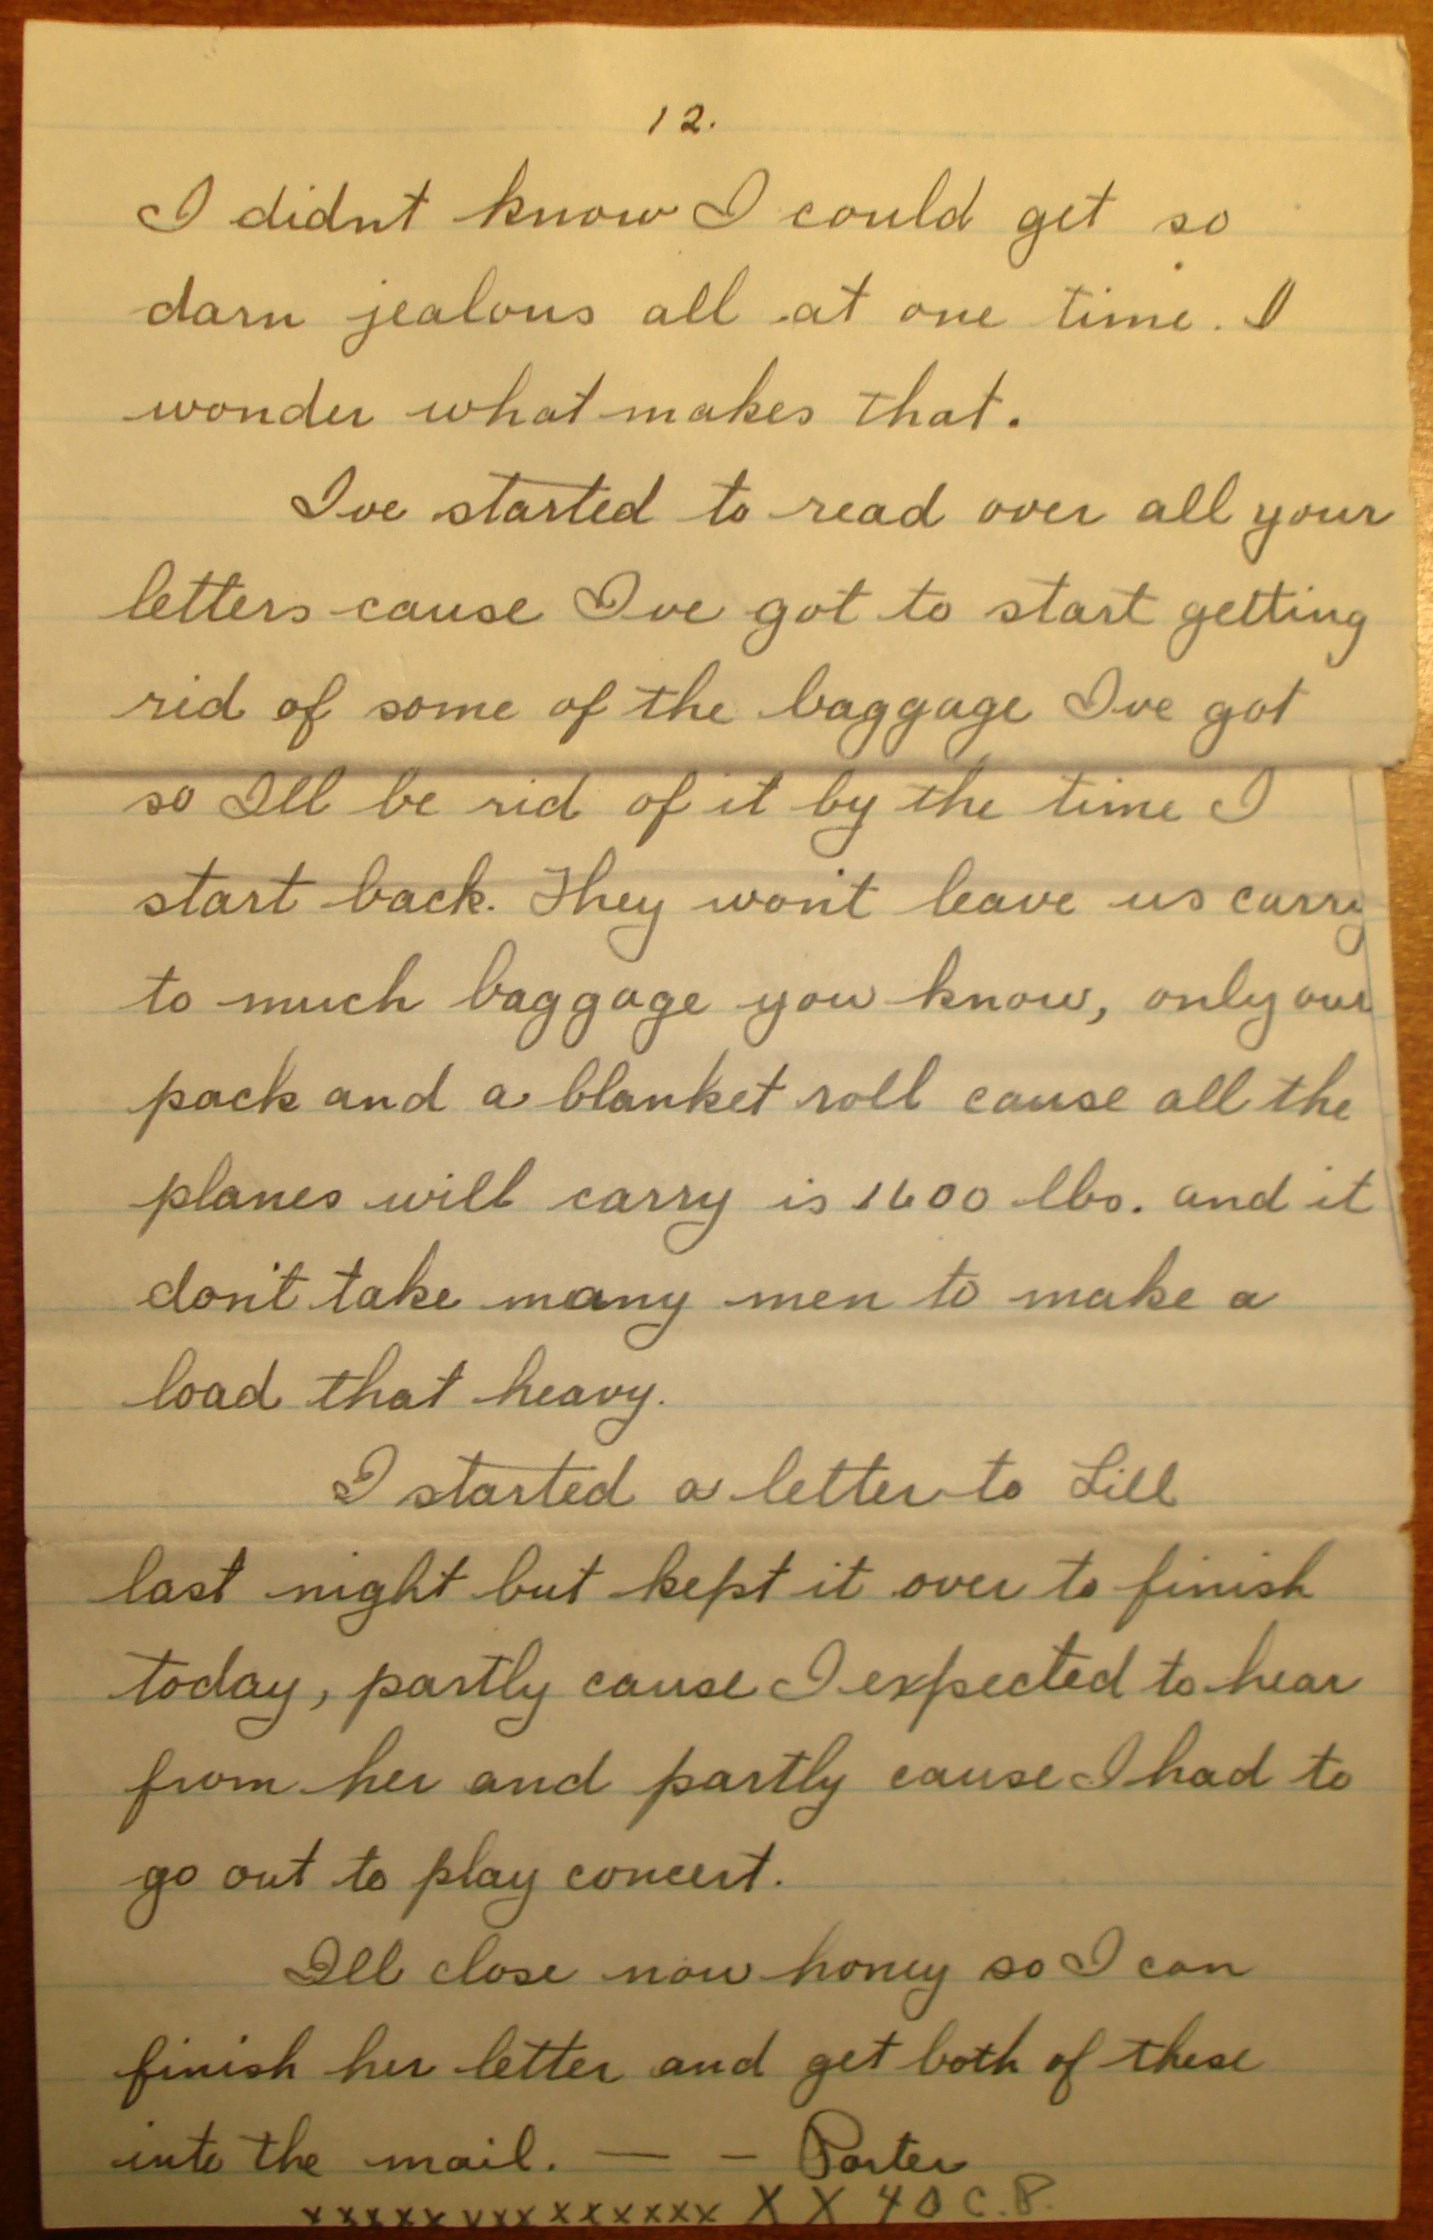 12.
I didnt know I could get so
darn jealous all at one time. I
wonder what makes that.
Ive started to read over all your
letters cause Ive got to start getting
rid of some of the baggage Ive got
so Ill be rid of it by the time I
start back. They won't leave us carry
to much baggage you know, only our
pack and a blanket roll cause all the
planes will carry is 1600 lbs. and it
don't take many men to make a
load that heavy.
I started a letter to Lill
last night but kept it over to finish
today, partly cause I expected to hear
from her and partly cause I had to
go out to play concert.
Ill close now honey so I can
finish her letter and get both of these
into the mail. — – Porter
xxxxx xxx xxxxxxx X X 40 C.P.